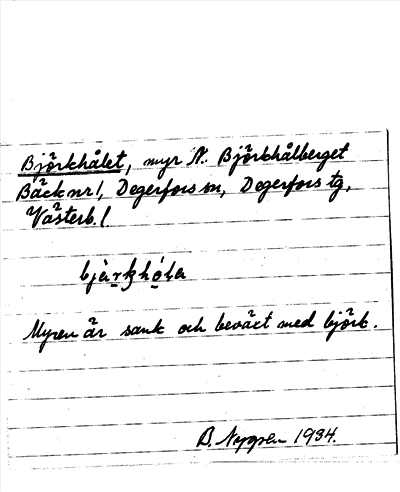 Björkhålet, myr N. Björkhålberget
Bäck nr 1, Degerfors sn, Degerfors tg,
Västerb. l
Myren är sank och beväxt med björk.
B. Nygren 1934.